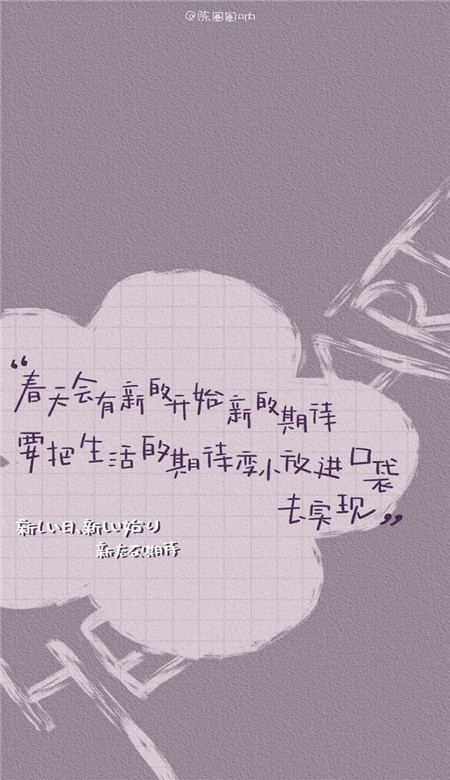 @陈圈圈吶
“春天会有新的开始新的期待
要把生活的期待变小放进口袋
去实现”
新しい日、新しい始り
新たな期待